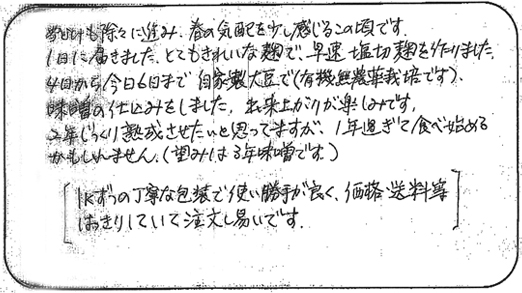 も除々に進み、春の気配を少し感じるこの頃です。
1日に届きました。とてもきれいな麹で、早速塩切麹を作りました。
4日から今日6日まで自家製大豆で(有機無農薬栽培です)、
味噌の仕込みをしました。出来上がりが楽しみです。
2年じっくり熟成させたいと思ってますが、1年過ぎて食べ始める
かもしれません。(望みは3年味噌です)
1Kずつの丁寧な包装で使い勝手が良く、価格・送料等
はっきりしていて注文し易いです。